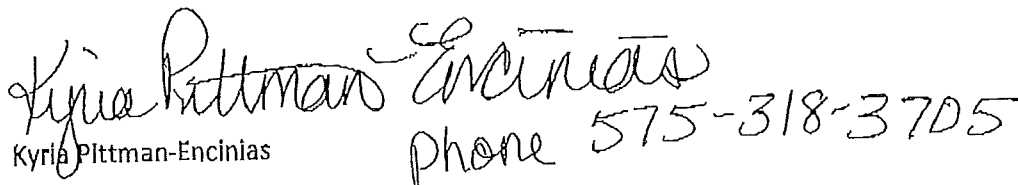 Kyria Pittman-Encinias
Kyria Pittman-Encinias
phone 575-318-3705